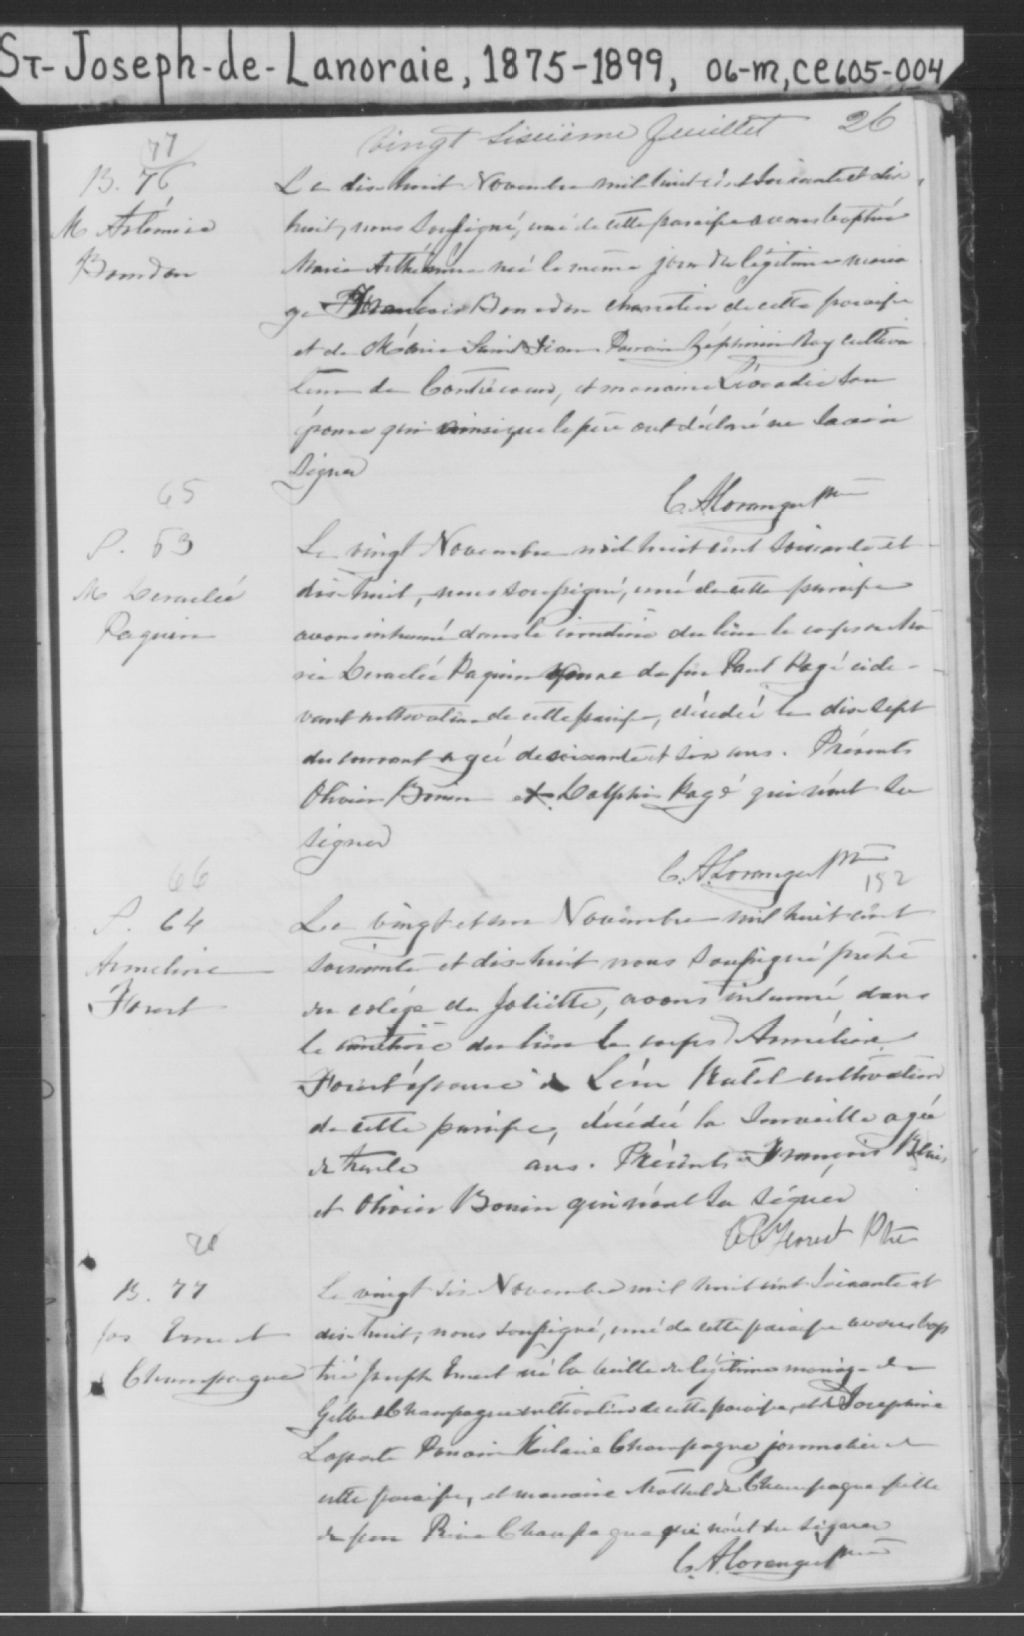 ST-Joseph-de-Lanoraie, 1875-1899, 06-M, CE605-004
Vingt Sixième feuillet 26
77
B. 76
M Artémise
Bourdon
Le dix huit Novembre mil huit cent soixante et dix
huit, nous soussigné, curé de cette paroisse avons baptisé
Marie née le même jour du légitime maria
ge François Bourdon charretier de cette paroisse
et de Marie Saint Jean. Parrain Zéphirin Roy cultiva
teur de Contrecoeur, et marraine Léocadie son
épouse qui ainsi que le père ont déclaré ne savoir
signer
C. A Loranger ptre
65
S. 63
M
Paquin
Le vingt Novembre mil huit cent soixante et
dix huit, nous soussigné, curé de cette paroisse
avons inhumé dans le cimetière du lieu le corps de Ma
rie Paquin épouse de feu Paul Pagé cide-
vant cultivateur de cette paroisse, décédée le dix sept
du courant agée de soixante et six ans. Présents
Olivier Bonin et Dolphis Pagé qui n'ont su
signer
C. A. Loranger ptre
152
66
S. 64
Armeline
Forest
Le vingt et un Novembre mil huit cent
soixante et dix huit nous soussigné prêtre
du colége de Joliette, avons inhumé dans
le cimetière du lieu le corps Armeline
Forest épouse de Léon cultivateur
de cette paroisse, décédée la surveille agée
de trente ans. Présents François
et Olivier Bonin qui n'ont su signer
Forest Ptre
78
B. 77
Jos Ernest
Champagne
Le vingt six Novembre mil huit cent soixante et
dix huit, nous soussigné, curé de cette paroisse avons bap
tisé Joseph Ernest né la veille du légitime mariage de
Gilbert Champagne cultivateur de cette paroisse, et de Josephine
Laporte Parrain Hilaire Champagne journalier de
cette paroisse, et marraine Mathilde Champagne fille
de feu Champagne qui n'ont su signer
C. A Loranger ptre